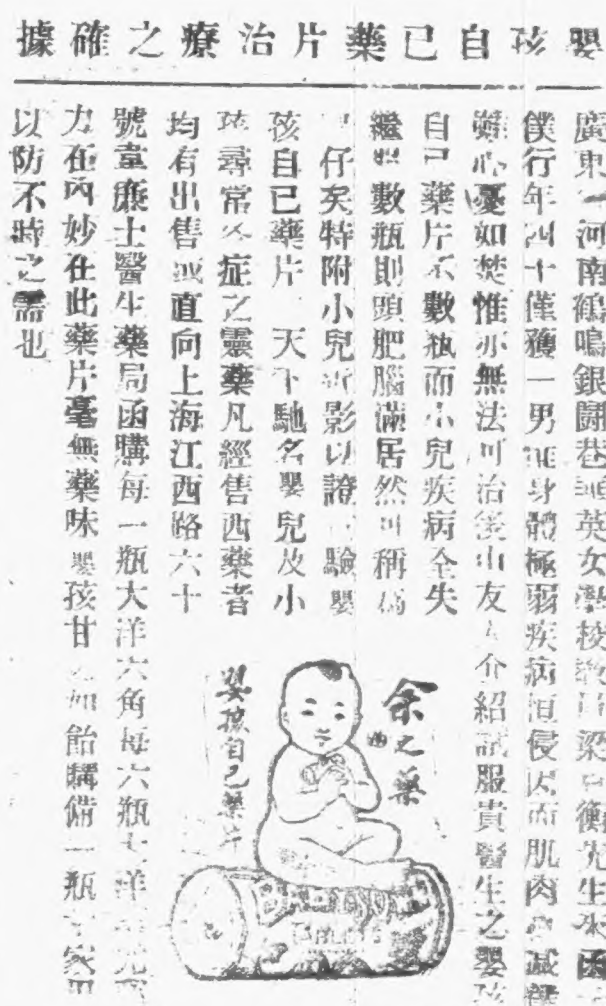 嬰孩自己藥片治療之確據
廣東 河南鶴鳴銀鬪巷 英女學校教員梁 衡先生來函
僕行年四十僅獲一男 身體極弱疾病恒侵因而肌肉 減
心憂如焚惟亦無法可治後由友人介紹試服貴醫生之嬰孩
自己藥片不數瓶而小兒疾病全失
繼 數瓶則頭肥腦滿居然可稱為
仔矣特附小兒近影以證 驗嬰
孩自己藥片 天下馳名嬰兒及小
孩尋常各症之靈藥凡經售西藥者
均有出售或直向上海江西路六十
號韋廉士醫生藥局函購每一瓶大洋六角每六瓶大洋
力在內妙在此藥片毫無藥味嬰孩甘 如飴購備一瓶 家
以防不時之需也
余之藥
嬰孩自己藥片
TABLETS